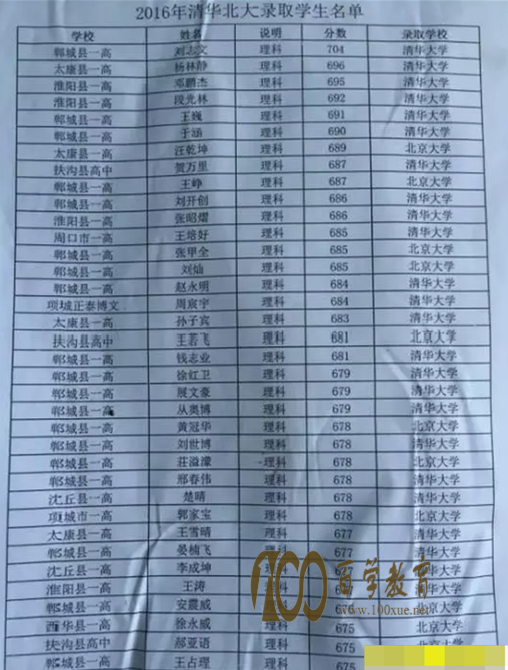 2016年清华北大录取学生名单
学校 姓名 说明 分数 录取学校
郸城县一高 刘志文 理科 704 清华大学
太康县一高 杨林静 理科 696 清华大学
淮阳县一高 邓鹏杰 理科 695 清华大学
淮阳县一高 段光林 理科 692 清华大学
郸城县一高 王巍 理科 691 清华大学
郸城县一高 于涵 理科 690 清华大学
太康县一高 汪乾坤 理科 689 北京大学
扶沟县高中 贺万里 理科 687 清华大学
郸城县一高 王峥 理科 687 北京大学
郸城县一高 刘开创 理科 686 清华大学
淮阳县一高 张昭熠 理科 686 清华大学
周口市一高 王培好 理科 685 清华大学
郸城县一高 张甲全 理科 685 北京大学
郸城县一高 刘灿 理科 685 北京大学
郸城县一高 赵永明 理科 684 清华大学
项城正泰博文 周宸宇 理科 684 清华大学
太康县一高 孙子宾 理科 683 清华大学
扶沟县高中 王若飞 理科 681 北京大学
郸城县一高 钱志业 理科 681 清华大学
郸城县一高 徐红卫 理科 679 清华大学
郸城县一高 展文豪 理科 679 清华大学
郸城县一高 从奥博 理科 679 清华大学
郸城县一高 黄冠华 理科 678 北京大学
郸城县一高 刘世博 理科 678 清华大学
郸城县一高 荘溢濛 理科 678 北京大学
郸城县一高 邢春伟 理科 678 清华大学
沈丘县一高 楚晴 理科 678 清华大学
项城市一高 郭家宝 理科 678 北京大学
太康县一高 王雪晴 理科 677 清华大学
郸城县一高 晏楠飞 理科 677 清华大学
沈丘县一高 李成坤 理科 清华大学
淮阳县一高 王涛 理科
郸城县一高 安震威 理科
西华县一高 徐永威 理科 675 北京大学
扶沟县高中 郝亚语 理科 675
郸城县一高 王占理 理科 675
100百学教育
www.100xue.net